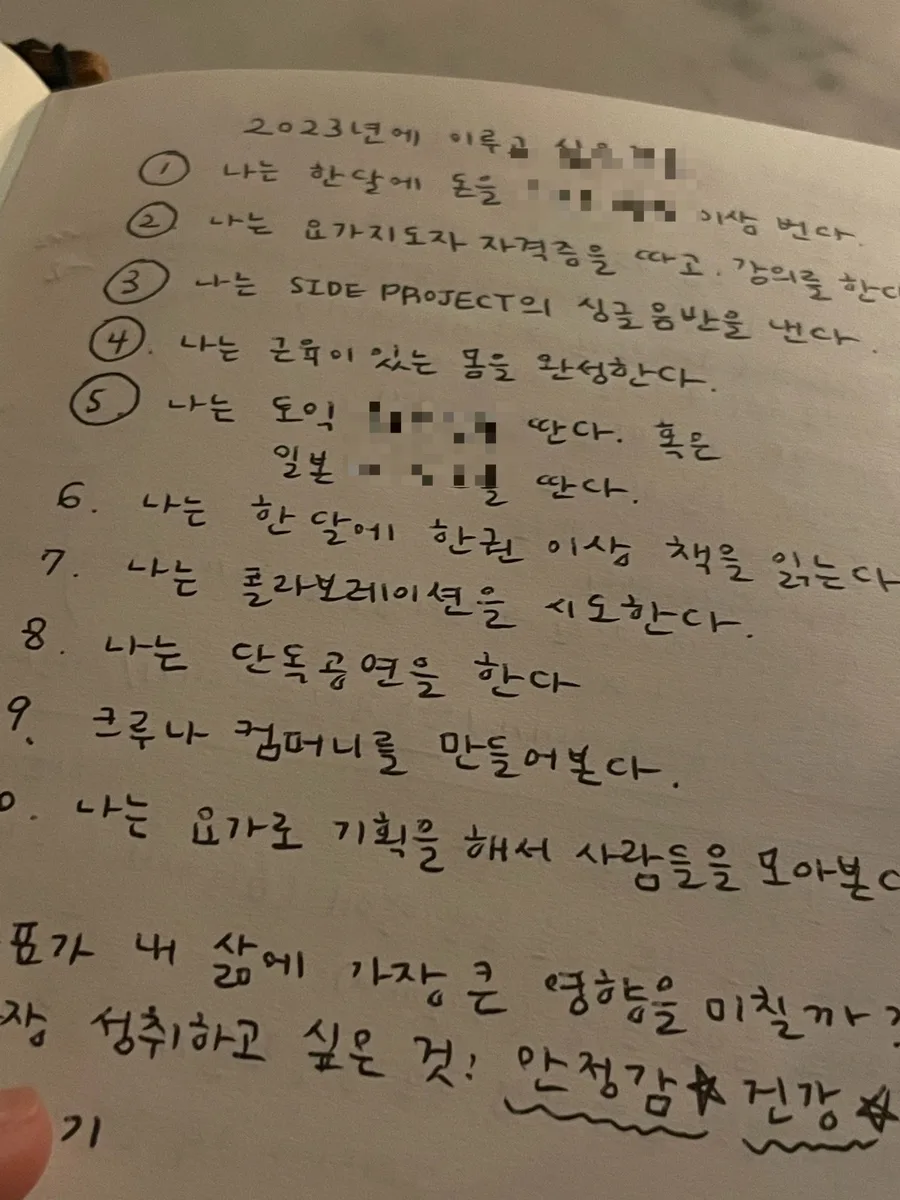 2023년에 이루고
① 나는 한달에 돈을 이상 번다.
② 나는 요가지도자 자격증을 따고. 강의를 한다
③ 나는 SIDE PROJECT의 싱글음반을 낸다.
④. 나는 근육이 있는 몸을 완성한다.
⑤. 나는 토익 딴다. 혹은
일본 딴다.
6. 나는 한달에 한권 이상 책을 읽는다
7. 나는 콜라보레이션을 시도한다.
8. 나는 단독공연을 한다
9. 크루나 컴퍼니를 만들어본다.
0. 나는 요가로 기획을 해서 사람들을 모아본다
표가 내 삶에 가장 큰 영향을 미칠까?
장 성취하고 싶은 것! 안정감★ 건강★
기